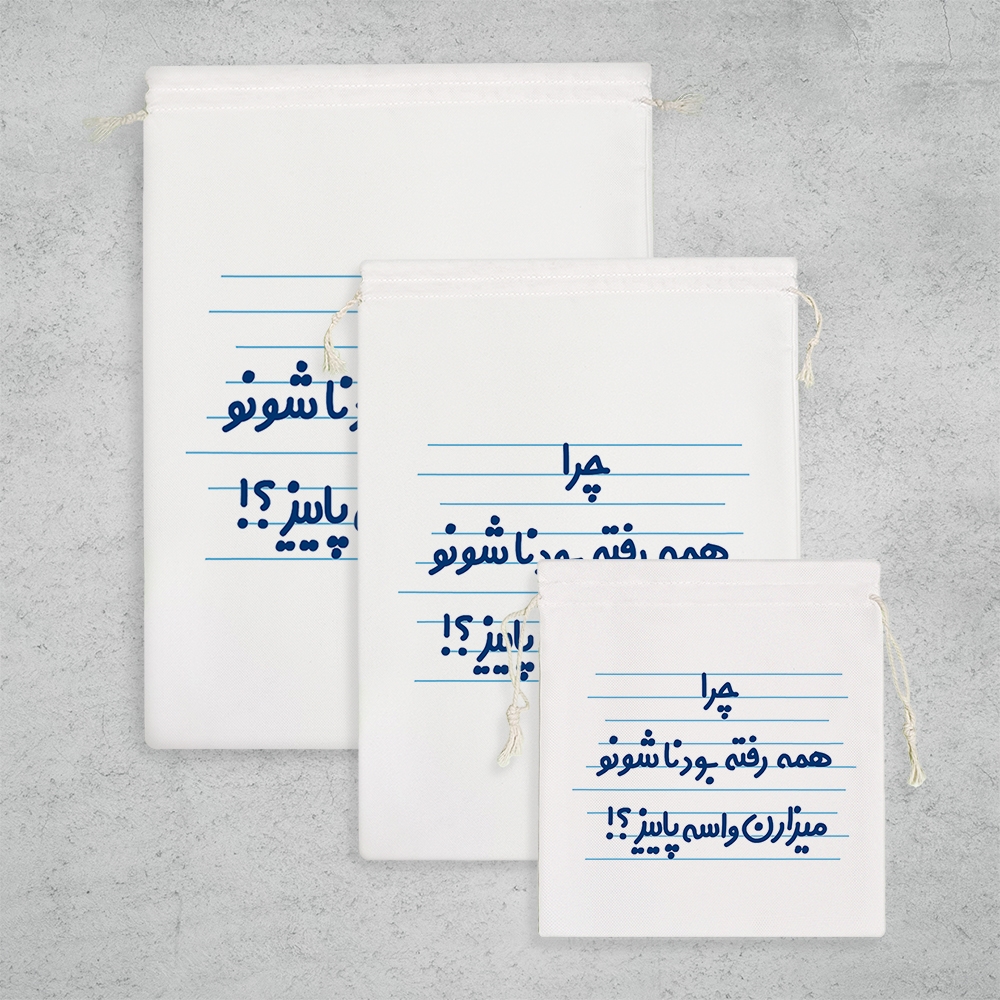 ناشونو
پاییز؟!
چرا
همه رفته بودناشونو
پاییز؟!
چرا
همه رفته بودناشونو
میزارن واسه پاییز؟!